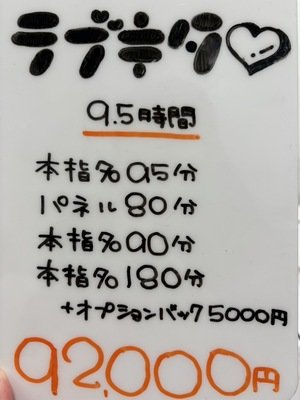 ラブキュタ♡
9.5時間
本指%95分
パネル80分
本指%90分
本指%180分
+オプションバック5000円
92,000円